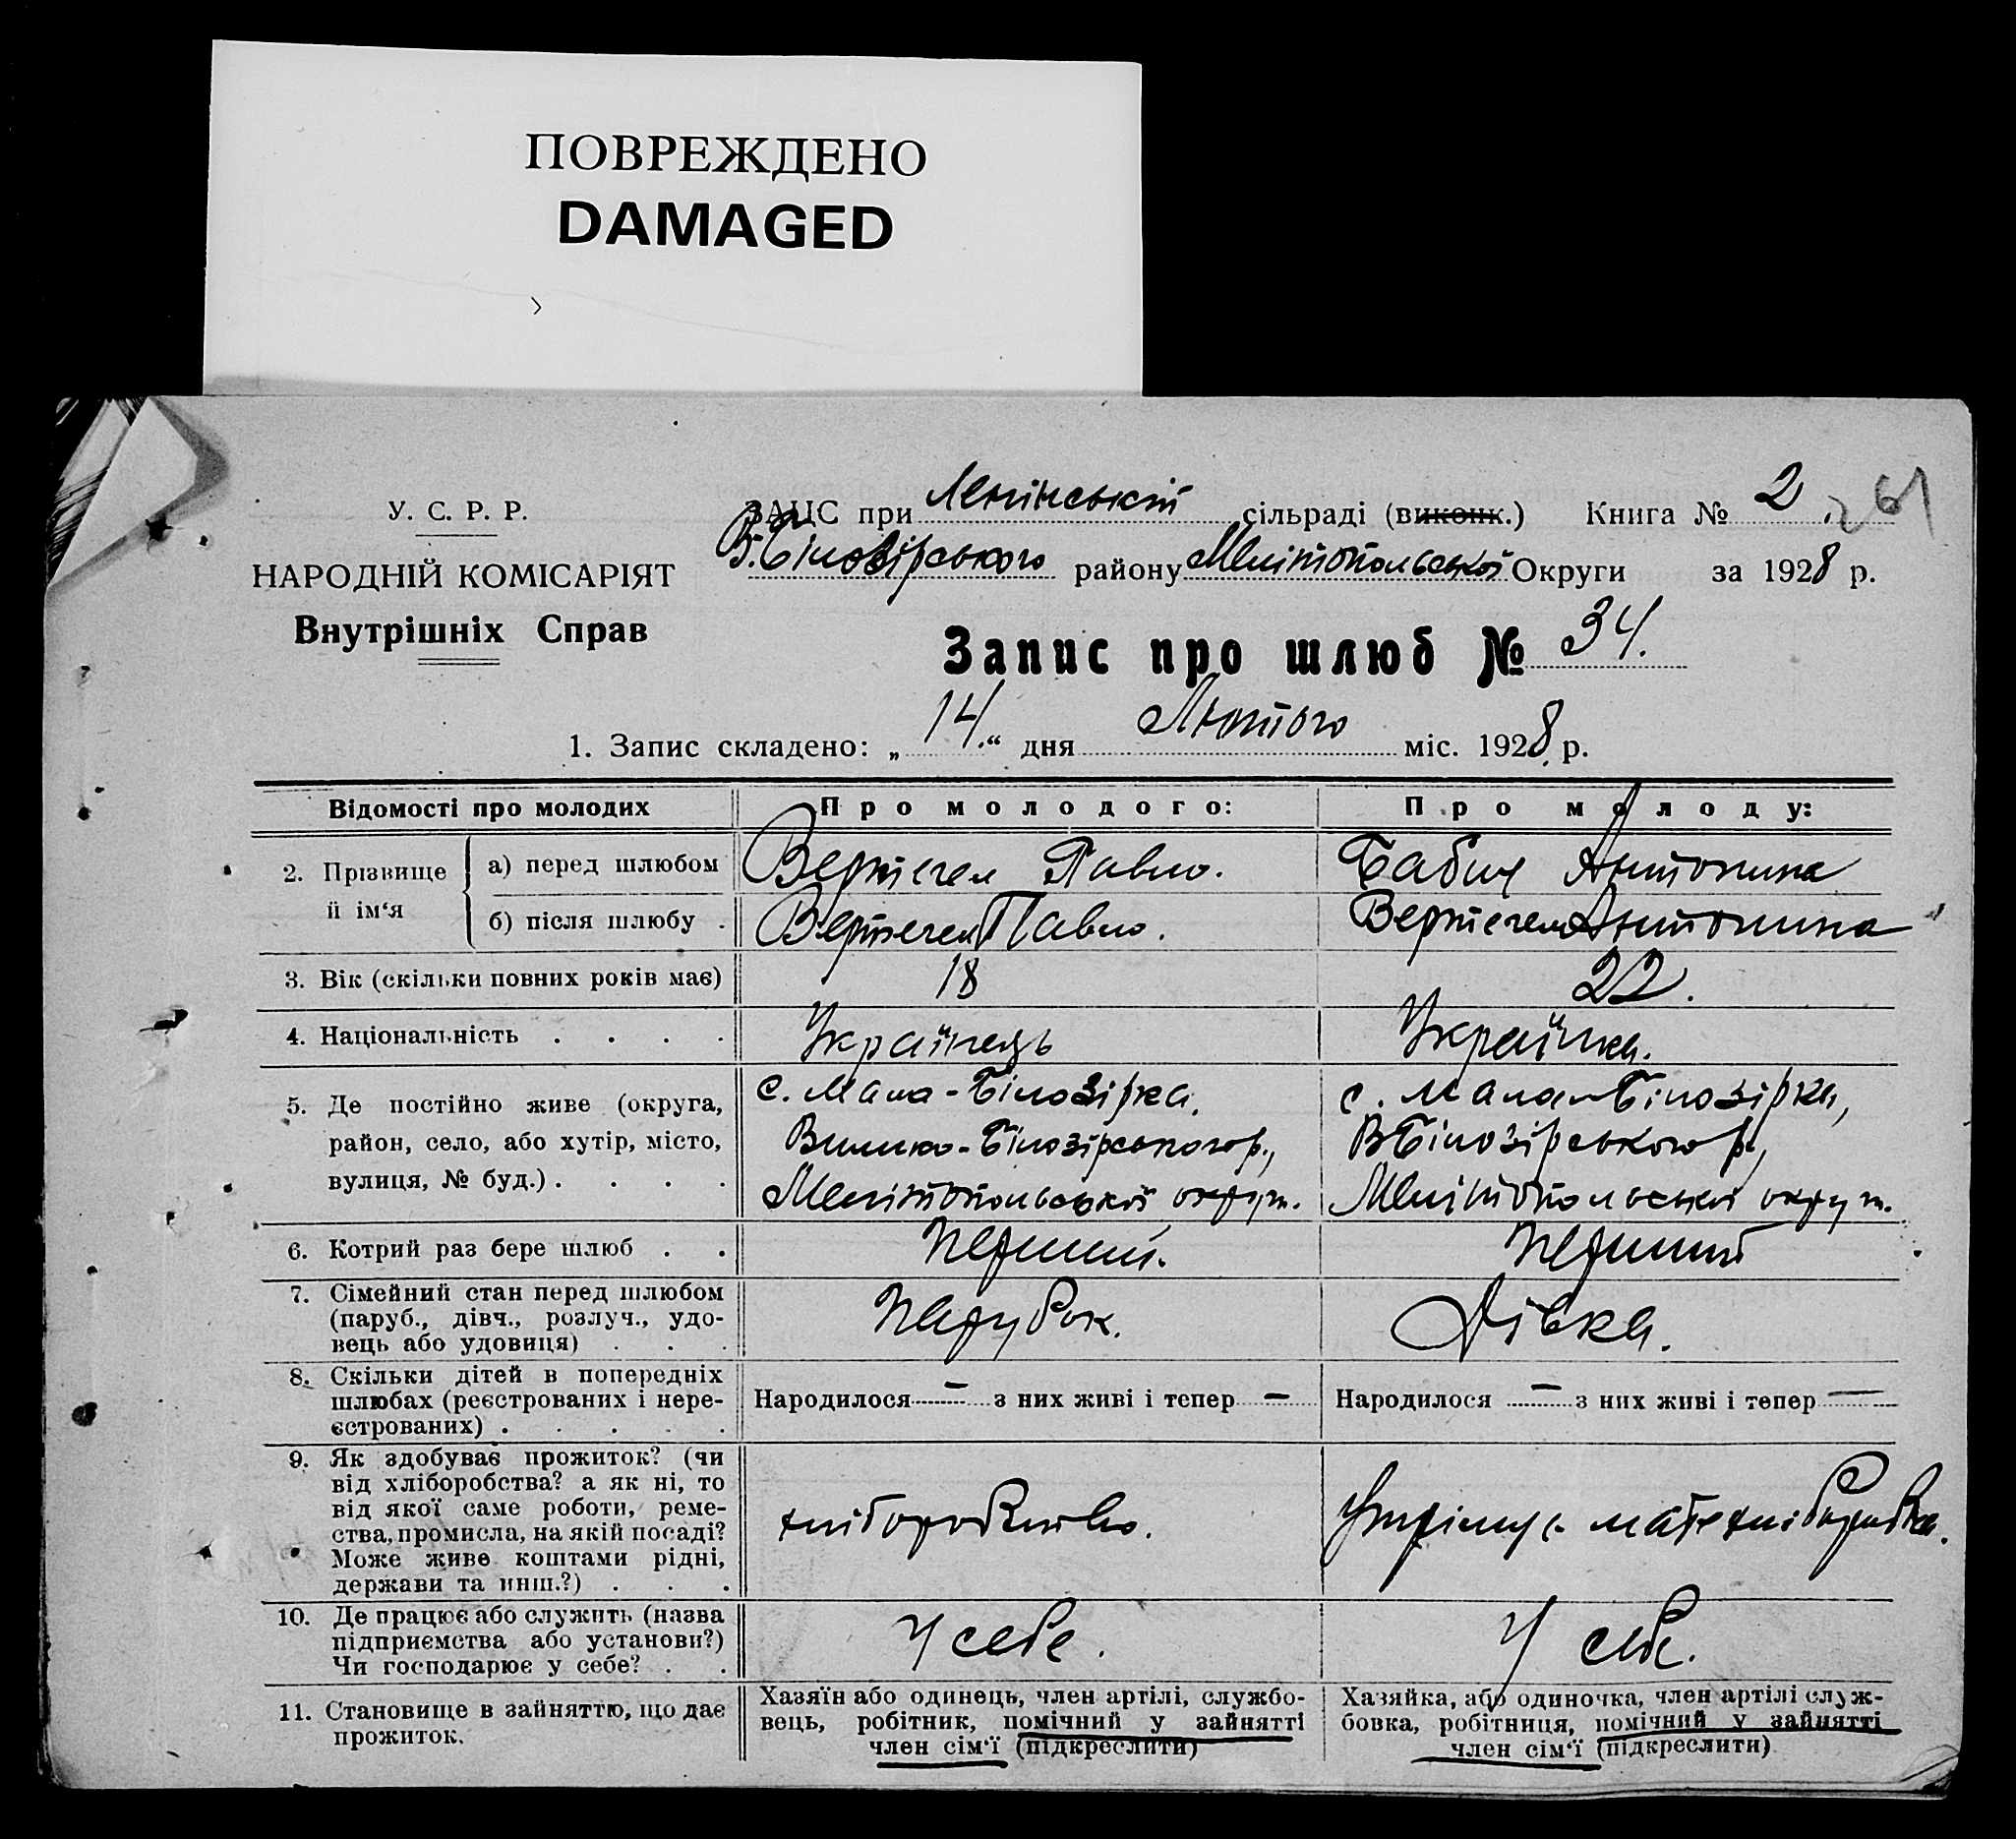 ПОВРЕЖДЕНО
DAMAGED
У. С. Р. Р.
НАРОДНІЙ КОМІСАРІЯТ
Внутрішніх Справ
ЗАЦС при Ленінській сільраді (виконк.) Книга № 2. 261
В.Білозірського району Мелітопольської Округи за 1928 р.
Запис про шлюб № 34.
1. Запис складено: „14.“ дня Лютого міс. 1928 р.
Відомості про молодих Про молодого: Про молоду:
2. Прізвище й ім‘я
а) перед шлюбом Вертегел Павло. Бабич Антонина
б) після шлюбу . Вертегел Павло. Вертегел Антонина
3. Вік (скільки повних років має) 18 22.
4. Національність . . . . Українець Українка.
5. Де постійно живе (округа, район, село, або хутір, місто, вулиця, № буд.) . . . .
с. Мала-Білозірка,
Велико-Білозірського р.,
Мелітопольської округ.
с. Мала-Білозірка,
ВБілозірського р.,
Мелітопольської округ.
6. Котрий раз бере шлюб . . Перший. Перший
7. Сімейний стан перед шлюбом
(паруб., дівч., розлуч., удо-
вець або удовиця) . . .
Парубок. Дівка.
8. Скільки дітей в попередніх
шлюбах (реєстрованих і нере-
єстрованих) . . . . .
Народилося — з них живі і тепер — Народилося — з них живі і тепер —
9. Як здобуває прожиток? (чи
від хліборобства? а як ні, то
від якої саме роботи, реме-
ства, промисла, на якій посаді?
Може живе коштами рідні,
держави та инш.?) . . .
хліборобство. мати хліборобка.
10. Де працює або служить (назва
підприємства або установи?)
Чи господарює у себе? . .
У себе. У себе.
11. Становище в зайняттю, що дає
прожиток.
Хазяїн або одинець, член артілі, службо-
вець, робітник, помічний у зайнятті
член сім‘ї (підкреслити)
Хазяйка, або одиночка, член артілі служ-
бовка, робітниця, помічний у зайнятті
член сім‘ї (підкреслити)